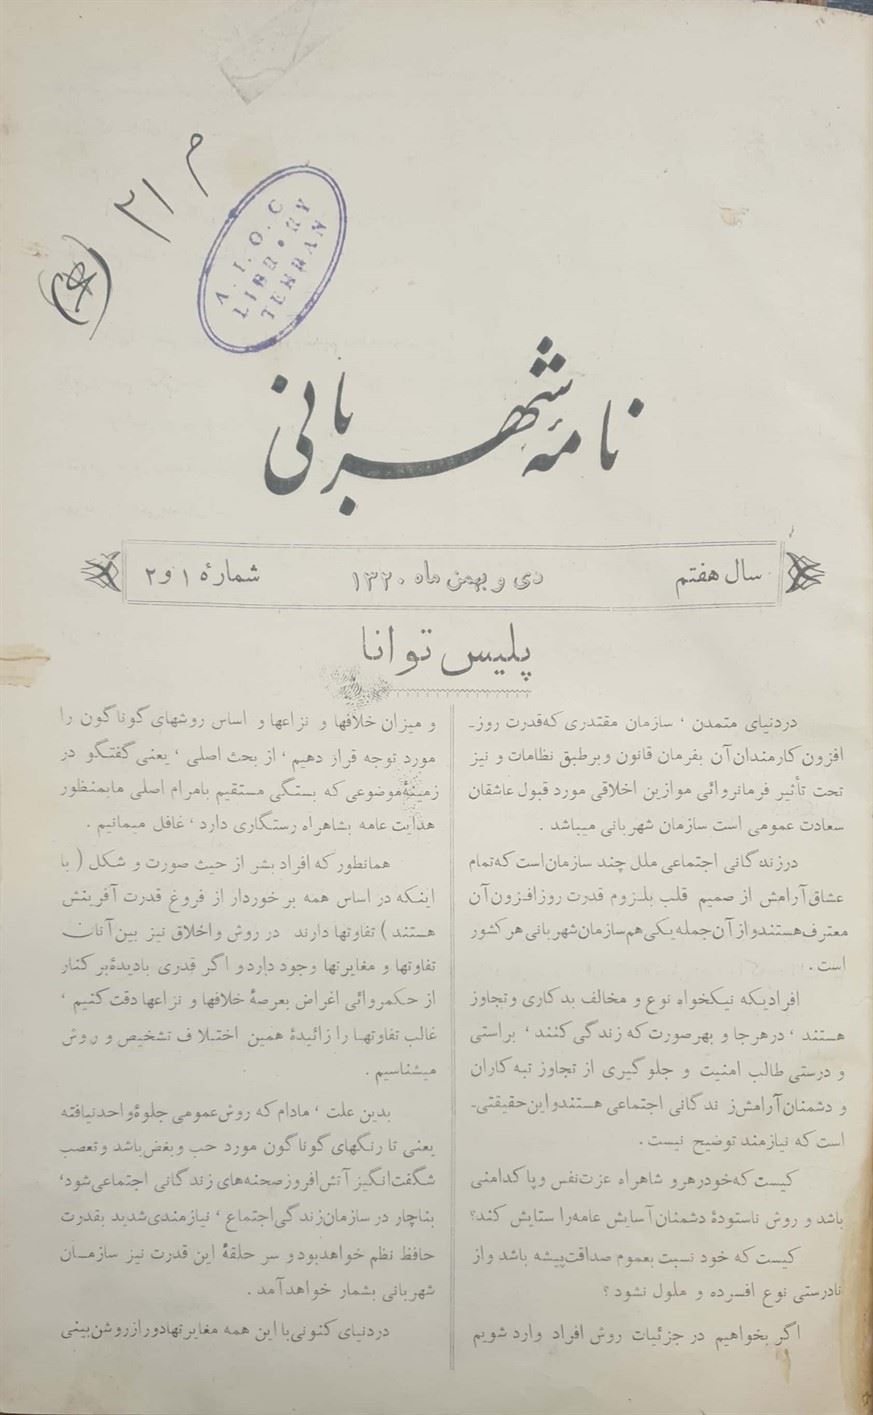 م
۲۱
A.I.O.C
LIBRARY
TEHRAN
نامهٔ شهربانی
سال هفتم
دی و بهمن ماه ۱۳۲۰
شمارهٔ ۱ و ۲
پلیس توانا
دردنیای متمدن ، سازمان مقتدری که قدرت روز-
افزون کارمندان آن بفرمان قانون و برطبق نظامات و نیز
تحت تأثیر فرمانروائی موازین اخلاقی مورد قبول عاشقان
سعادت عمومی است سازمان شهربانی میباشد .
درزندگانی اجتماعی ملل چند سازمان است که تمام
عشاق آرامش از صمیم قلب بلزوم قدرت روزافزون آن
معترف هستند و از آن جمله یکی هم سازمان شهربانی هر کشور
است .
افرادیکه نیکخواه نوع و مخالف بدکاری و تجاوز
هستند ، درهرجا و بهرصورت که زندگی کنند ، براستی
و درستی طالب امنیت و جلوگیری از تجاوز تبه کاران
و دشمنان آرامش زندگانی اجتماعی هستند و این حقیقتی-
است که نیازمند توضیح نیست .
کیست که خود رهرو شاهراه عزت نفس و پاکدامنی
باشد و روش ناستودهٔ دشمنان آسایش عامه را ستایش کند؟
کیست که خود نسبت بعموم صداقت پیشه باشد و از
نادرستی نوع افسرده و ملول نشود ؟
اگر بخواهیم در جزئیات روش افراد وارد شویم
و میزان خلافها و نزاعها و اساس روشهای گوناگون را
مورد توجه قرار دهیم ، از بحث اصلی ، یعنی گفتگو در
زمینهٔ موضوعی که بستگی مستقیم بامرام اصلی ما بمنظور
هدایت عامه بشاهراه رستگاری دارد ، غافل میمانیم .
همانطور که افراد بشر از حیث صورت و شکل ( با
اینکه در اساس همه برخوردار از فروغ قدرت آفرینش
هستند ) تفاوتها دارند در روش و اخلاق نیز بین آنان
تفاوتها و مغایرتها وجود دارد و اگر قدری بادیدهٔ برکنار
از حکمروائی اغراض بعرصهٔ خلافها و نزاعها دقت کنیم ،
غالب تفاوتها را زائیدهٔ همین اختلاف تشخیص و روش
میشناسیم .
بدین علت ، مادام که روش عمومی جلوهٔ واحد نیافته
یعنی تا رنگهای گوناگون مورد حب و بغض باشد و تعصب
شگفت انگیز آتش افروز صحنه های زندگانی اجتماعی شود،
بناچار در سازمان زندگی اجتماع ، نیازمندی شدید بقدرت
حافظ نظم خواهد بود و سر حلقهٔ این قدرت نیز سازمان
شهربانی بشمار خواهد آمد .
دردنیای کنونی با این همه مغایرتها دور از روشن بینی